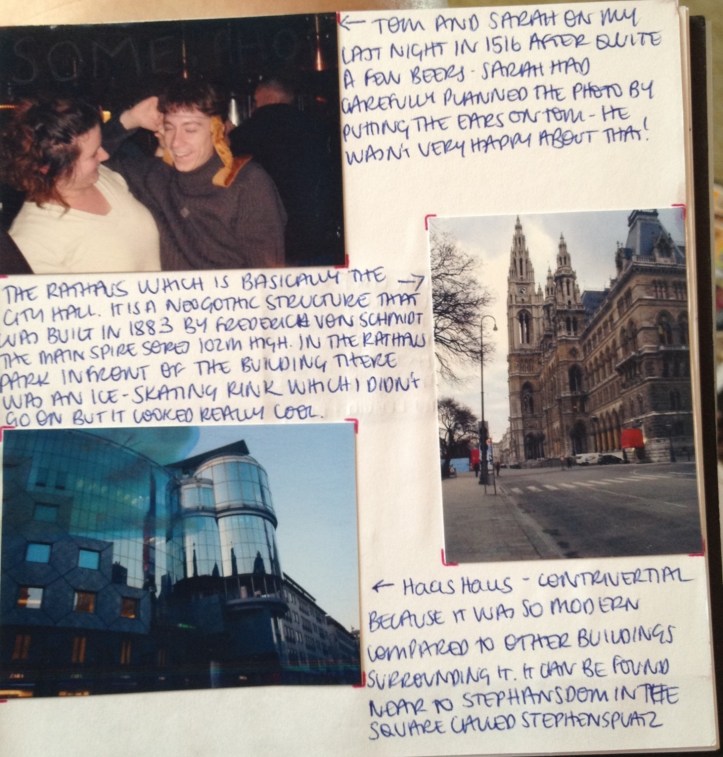 SOME
← TOM AND SARAH ON MY
LAST NIGHT IN 1516 AFTER QUITE
A FEW BEERS. SARAH HAD
CAREFULLY PLANNED THE PHOTO BY
PUTTING THE EARS ON TOM - HE
WASN'T VERY HAPPY ABOUT THAT!
THE RATHAUS WHICH IS BASICALLY THE →
CITY HALL. IT IS A NEOGOTHIC STRUCTURE THAT
WAS BUILT IN 1883 BY FREDERICK VON SCHMIDT
THE MAIN SPIRE SORES 102M HIGH. IN THE RATHAUS
PARK INFRONT OF THE BUILDING THERE
WAS AN ICE-SKATING RINK WHICH I DIDN'T
GO ON BUT IT LOOKED REALLY COOL.
← HAAS HAUS - CONTRIVERTIAL
BECAUSE IT WAS SO MODERN
COMPARED TO OTHER BUILDINGS
SURROUNDING IT. IT CAN BE FOUND
NEAR TO STEPHANSDOM IN THE
SQUARE CALLED STEPHENSPLATZ